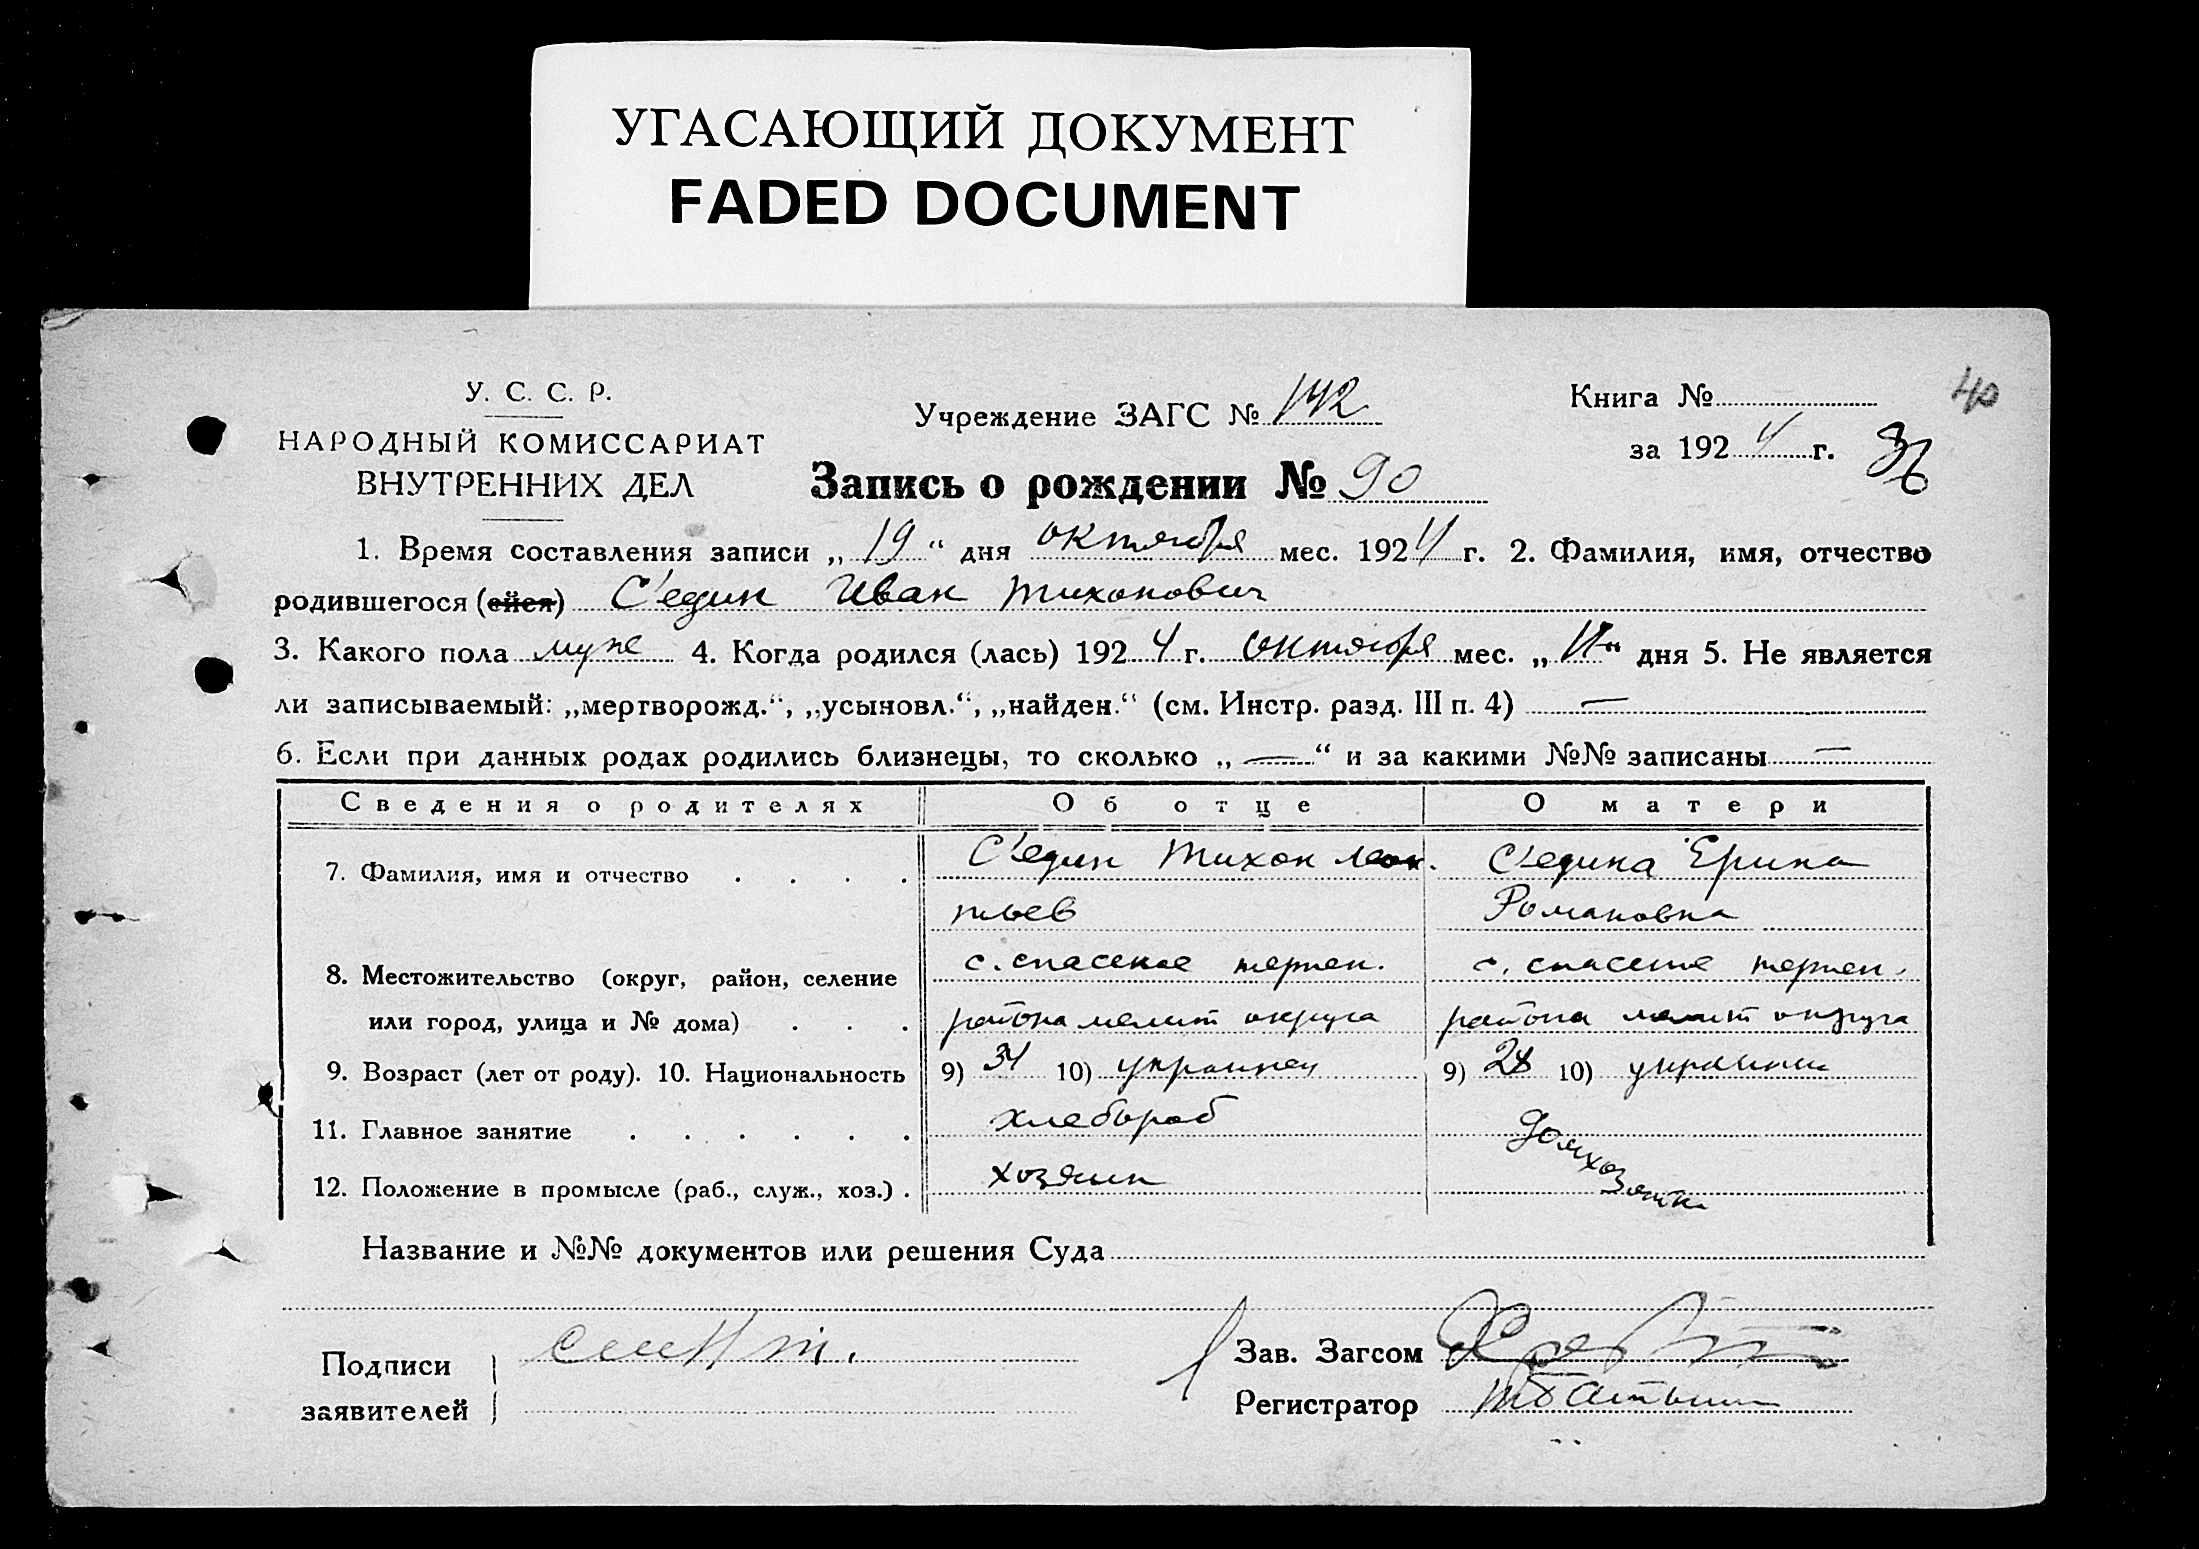 УГАСАЮЩИЙ ДОКУМЕНТ
FADED DOCUMENT
У. С. С. Р.
НАРОДНЫЙ КОМИССАРИАТ
ВНУТРЕННИХ ДЕЛ
Учреждение ЗАГС № 142
Книга №
за 1924 г.
40
Запись о рождении № 90
1. Время составления записи „19“ дня октября мес. 1924 г. 2. Фамилия, имя, отчество
родившегося (ейся) С'един Иван Тихонович
3. Какого пола муж 4. Когда родился (лась) 1924 г. октября мес. „ “ дня 5. Не является
ли записываемый: „мертворожд.“, „усыновл.“, „найден.“ (см. Инстр. разд. III п. 4) —
6. Если при данных родах родились близнецы, то сколько „—“ и за какими №№ записаны —
Сведения о родителях Об отце О матери
7. Фамилия, имя и отчество С'един Тихон Леон. С'едина Ерина
тьев Романовна
8. Местожительство (округ, район, селение с. спасское терпен. с. спаское терпен.
или город, улица и № дома) района мелит округа района мелит округа
9. Возраст (лет от роду). 10. Национальность 9) 31 10) украинец 9) 28 10) украинк
11. Главное занятие хлебороб домхозяйк
12. Положение в промысле (раб., служ., хоз.) хозяин
Название и №№ документов или решения Суда
Подписи
заявителей
Зав. Загсом
Регистратор